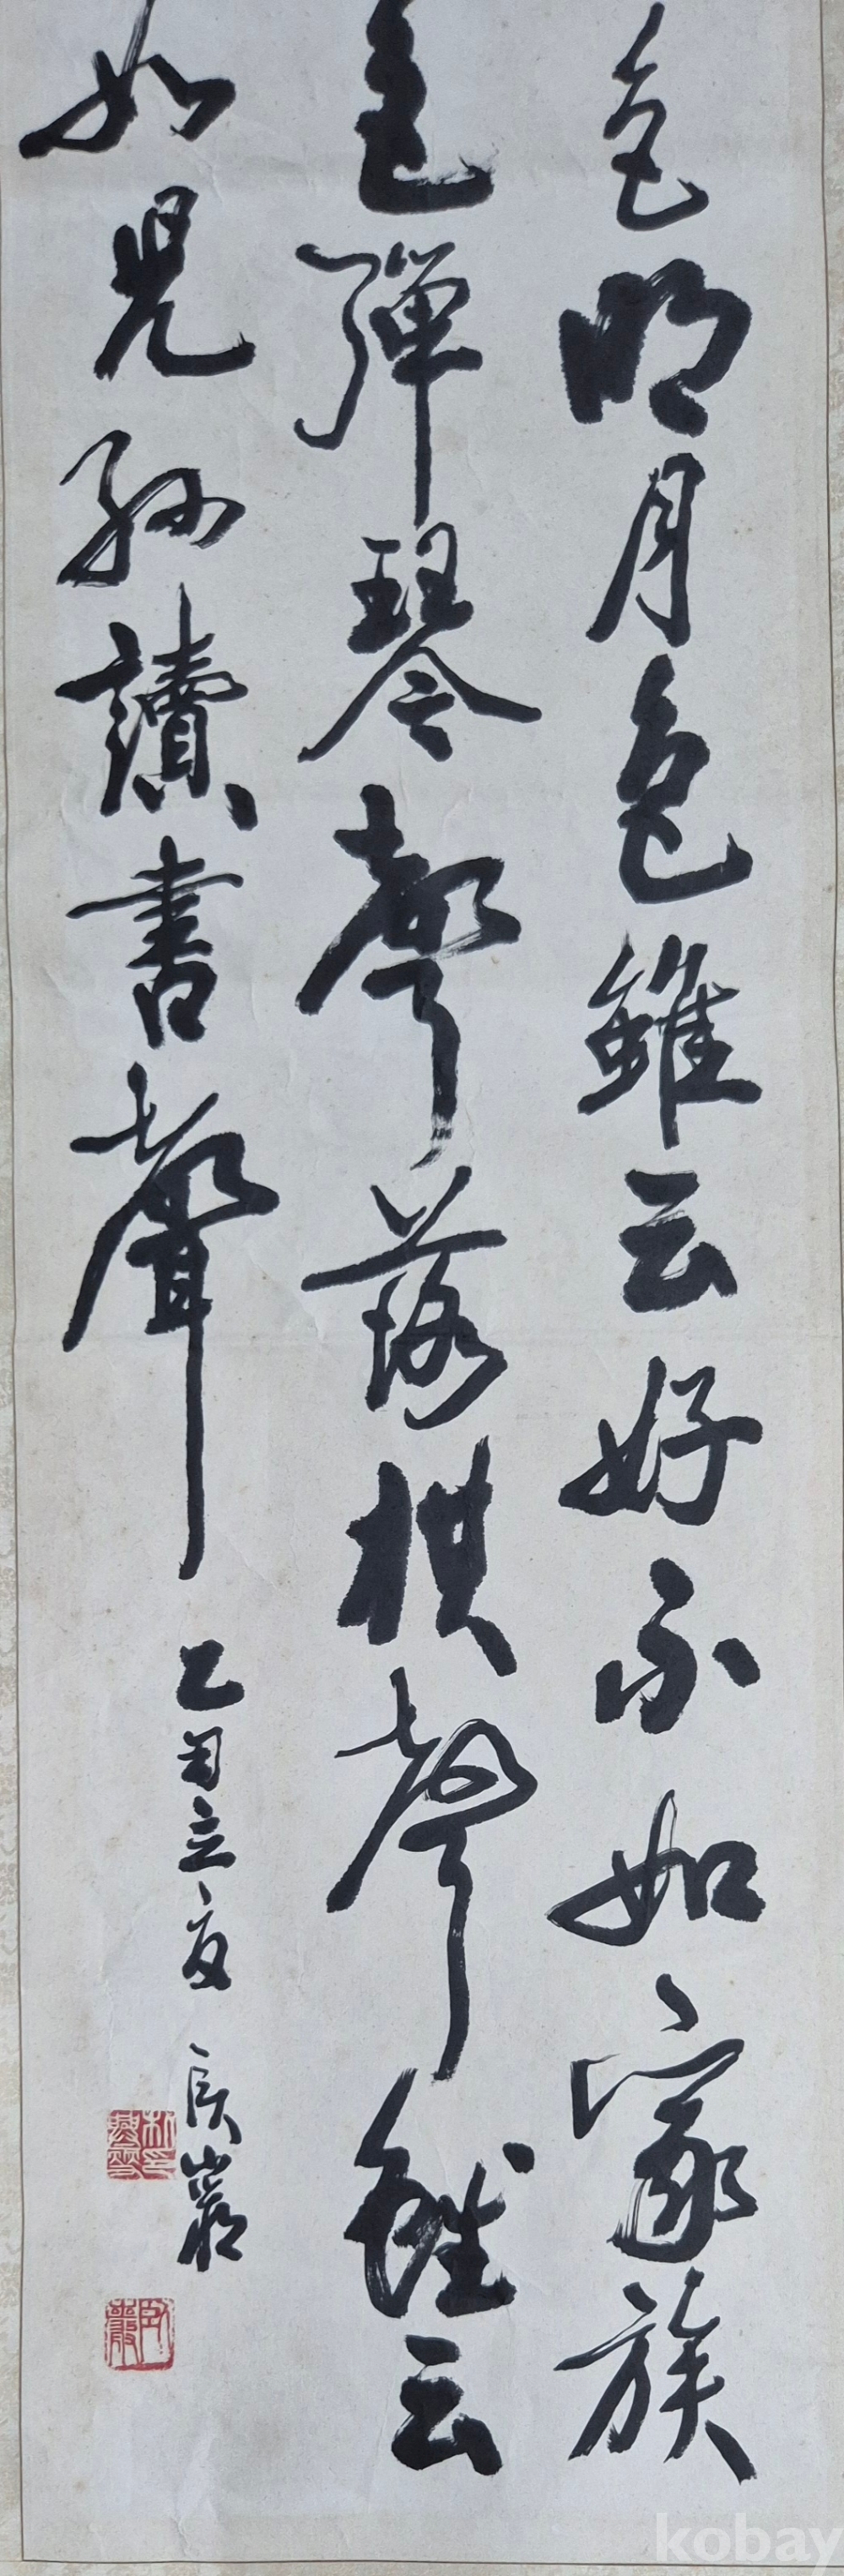 色明月色雖云好不如家族
色彈琴聲落棋聲雖云
如兒孫讀書聲
乙丑立夏
kobay